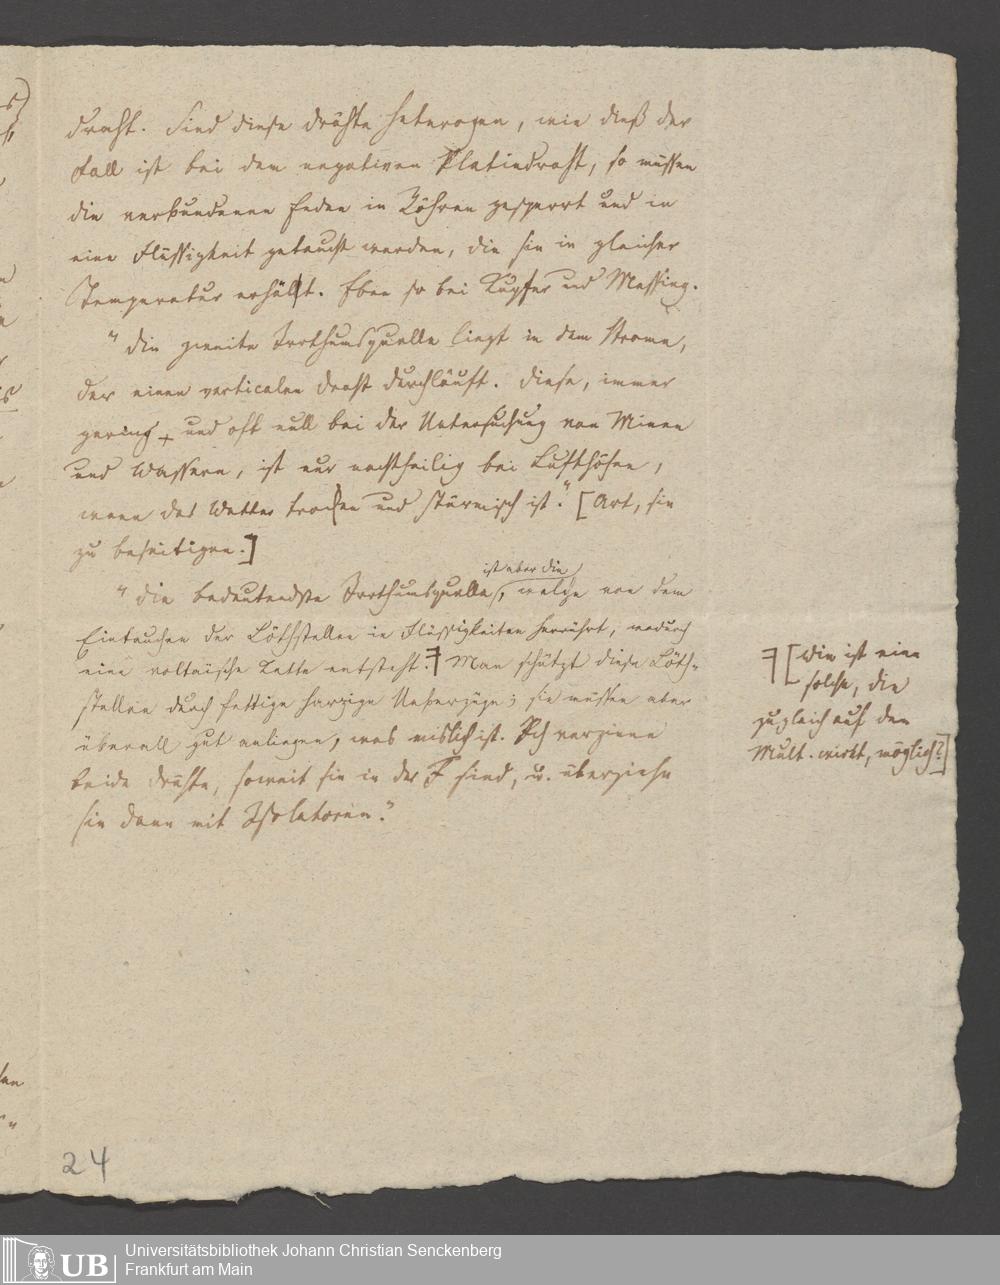 draht. Sind diese drähte heterogen, wie dieß der
Fall ist bei dem negativen Platindraht, so müssen
die verbundenen Enden in Röhren gesperrt und in
eine Flüssigkeit getaucht werden, die sie in gleicher
Temperatur erhält. Eben so bei Kupfer und Messing.
" die zweite Irrthumsquelle liegt in dem Strome,
der einen verticalen draht durchläuft. diese, immer
gering, und oft null bei der Untersuchung von Minen
und Wassern, ist nur nachtheilig bei Lufthöhen,
wenn das Wetter trocken und stürmisch ist." [Art, sie
zu beseitigen.]
" die bedeutendste Irrthumsquelle ist aber die, welche von dem
Eintauchen der Löthstellen in Flüssigkeiten herrührt, wodurch
eine voltaische Kette entsteht. Man schützt diese Löth-
stellen durch fettige harzige Ueberzüge; sie müssen aber
überall gut anliegen, was mislich ist. Ich verzinne
beide drähte, soweit sie in der F sind, u. überziehe
sie dann mit Isolatoren."
[Wie ist eine
solche, die
zugleich auf den
Mult. wirkt, möglich?]
24
UB
Universitätsbibliothek Johann Christian Senckenberg
Frankfurt am Main